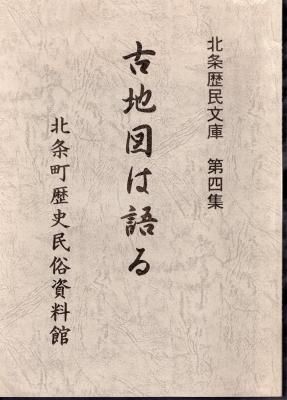 北条歴民文庫 第四集
古地図は語る
北条町歴史民俗資料館